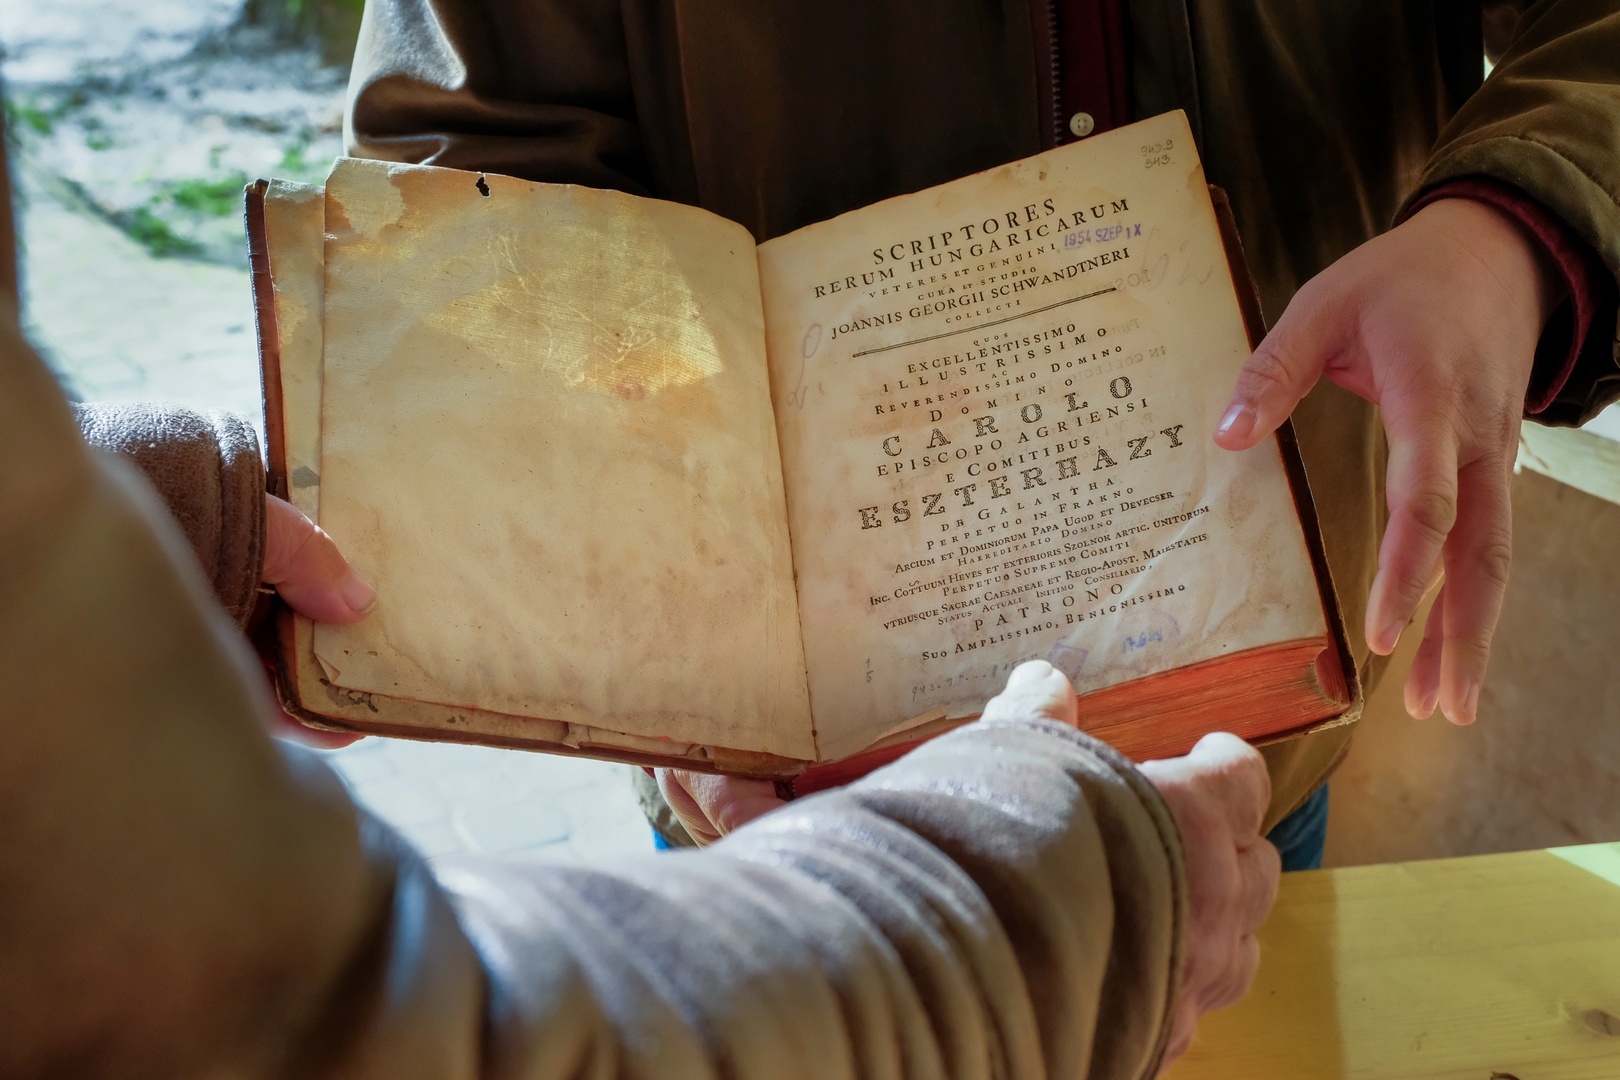 943.9
543
SCRIPTORES
RERUM HUNGARICARUM
VETERES ET GENUINI
1954 SZEP 1 X
CURA ET STUDIO
JOANNIS GEORGII SCHWANDTNERI
COLLECTI
QUOS
EXCELLENTISSIMO
ILLUSTRISSIMO
AC
REVERENDISSIMO DOMINO
DOMINO
CAROLO
EPISCOPO AGRIENSI
E COMITIBUS
ESZTERHÀZY
DE GALANTHA
PERPETUO IN FRAKNO
ARCIUM ET DOMINIORUM PAPA UGOD ET DEVECSER
HAEREDITARIO DOMINO
INC. COTTUUM HEVES ET EXTERIORIS SZOLNOK ARTIC. UNITORUM
PERPETUO SUPREMO COMITI
VTRIUSQUE SACRAE CAESAREAE ET REGIO-APOST. MAIESTATIS
STATUS ACTUALI INTIMO CONSILIARIO,
PATRONO
SUO AMPLISSIMO, BENIGNISSIMO
1
5